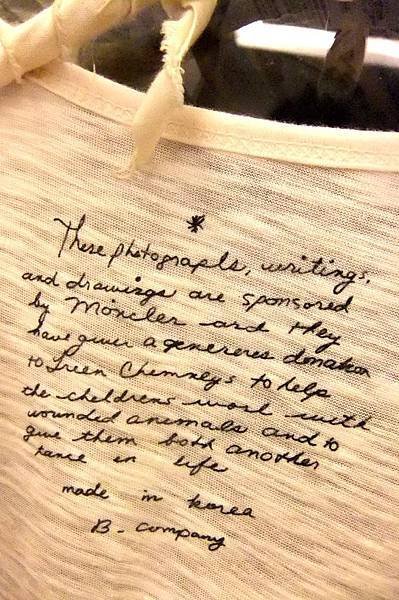 *
These photographs, writings,
and drawings are sponsored
by Moncler and they
have given a genereres donation
to Green Chemneys to help
the childrens work with
wounded animals and to
give them both another
tance in life
made in korea
B - company